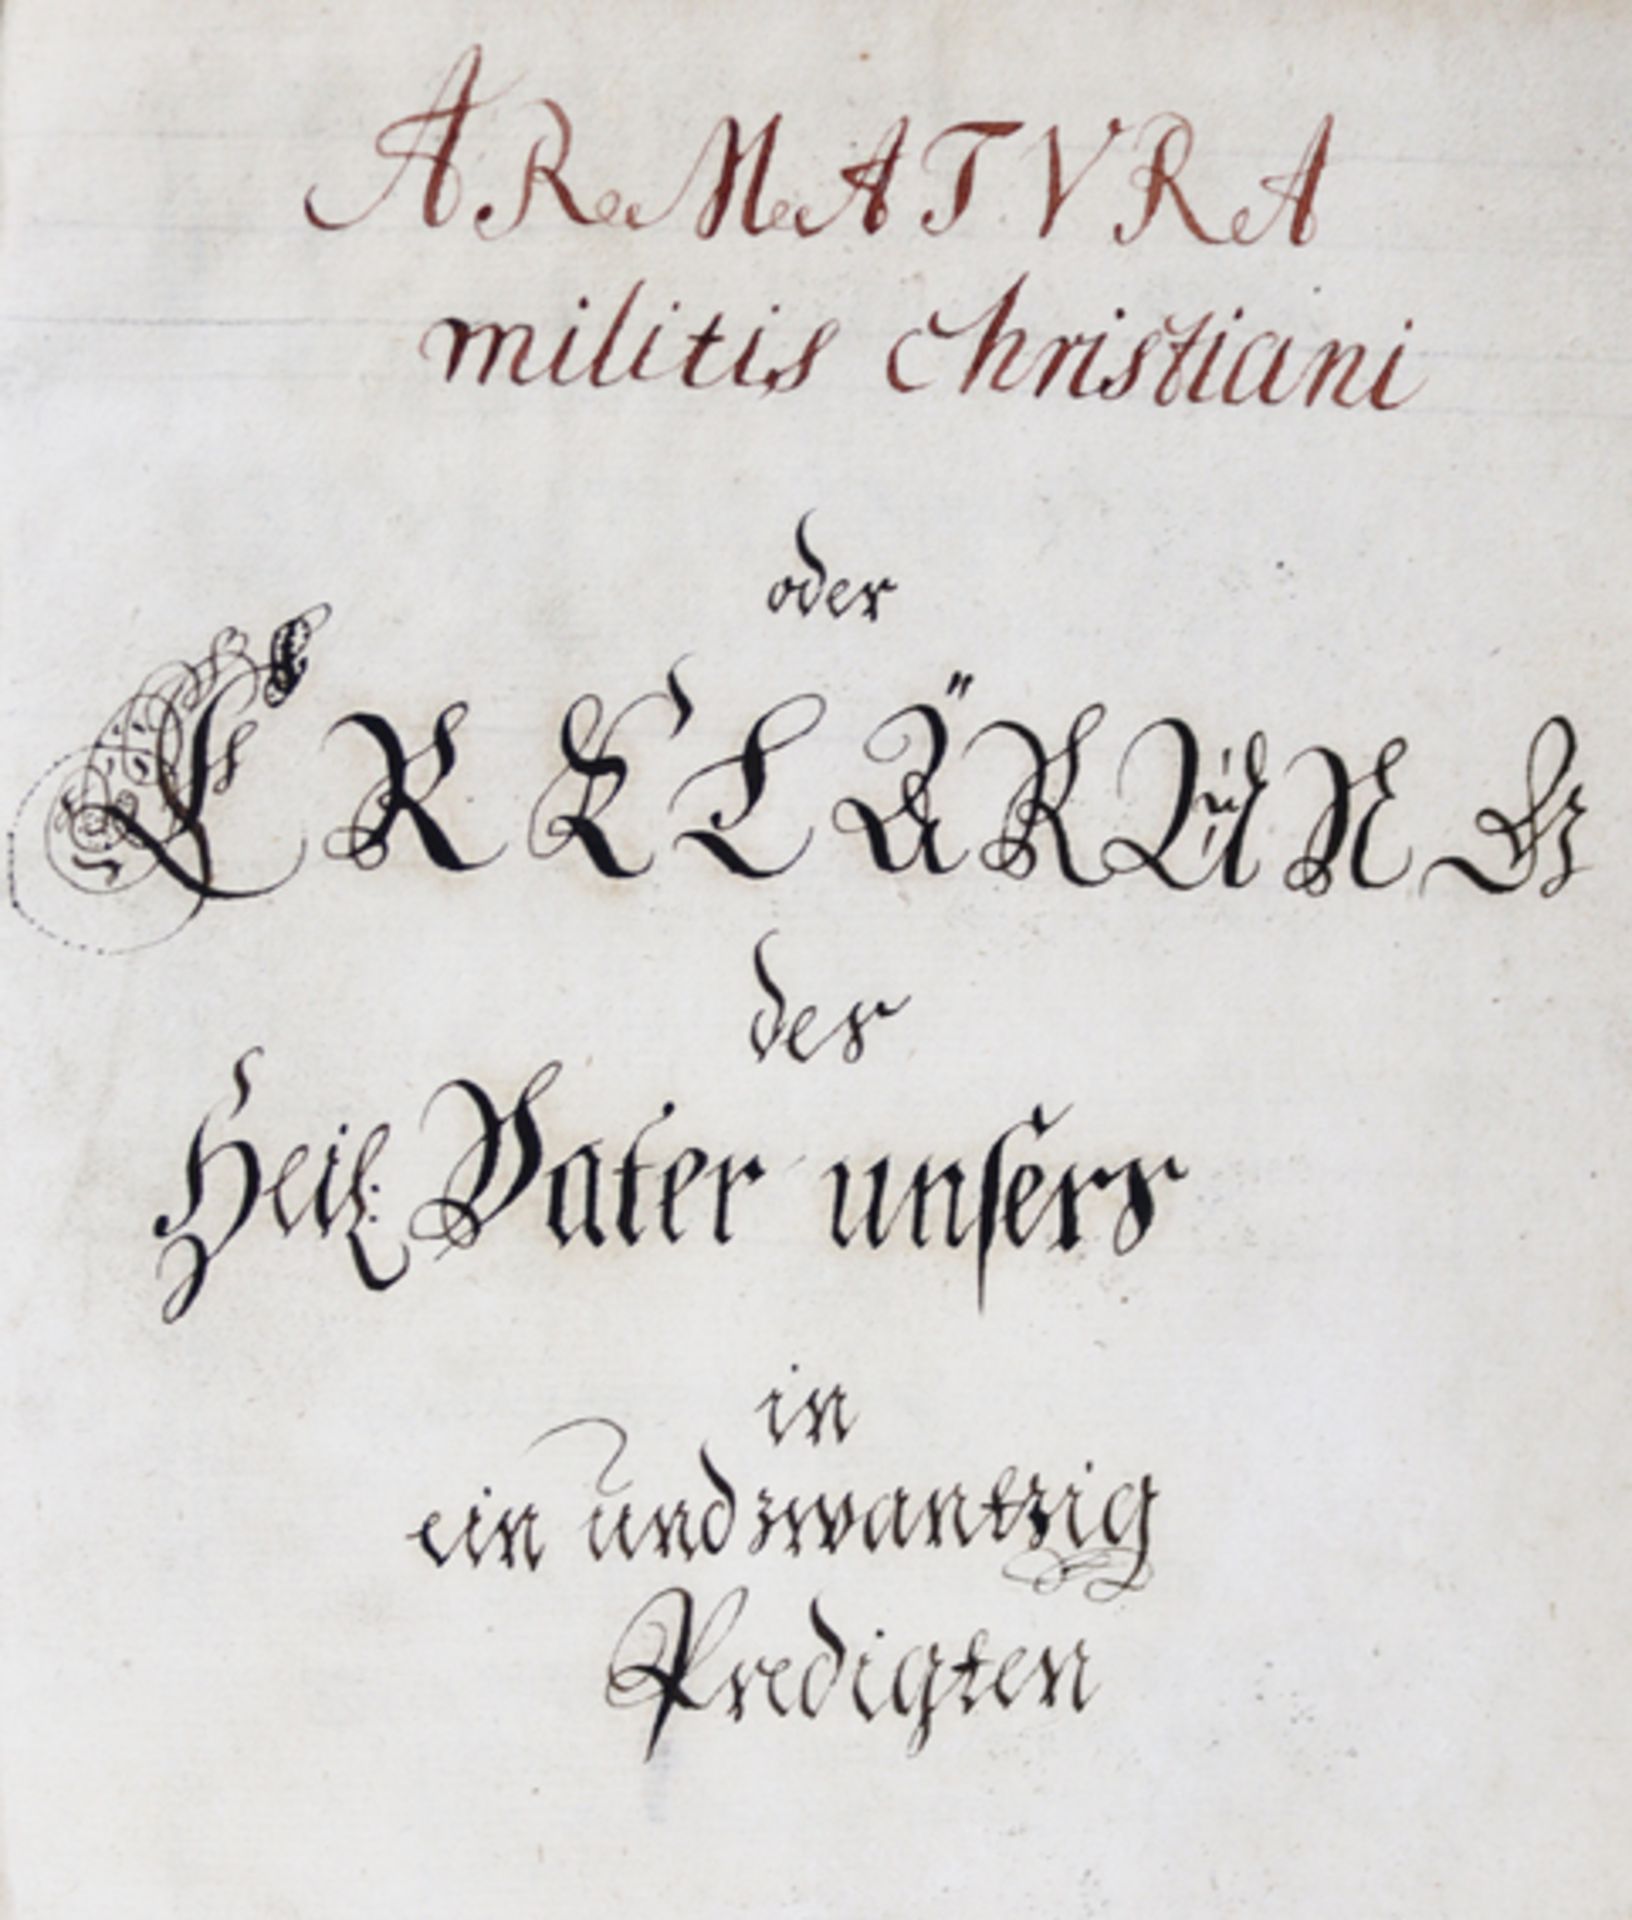 ARMATVRA
militis Christiani
oder
ERKLÄRUNG
der
Heil: Vater unsers
in
ein undzwantzig
Predigten